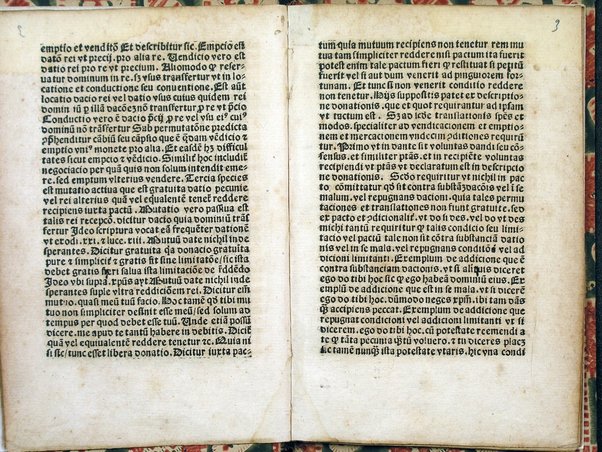 emptio et venditō Et describitur sic. Empcio est
datō rei vt precij. pro alia re. Vendicio vero est
datio rei pro re vt precium. Aliomodo qꝫ reser-
uatur dominium in re. sꝫ vsus transfertur vt in lo-
catione et conductione seu conuentione. Est aūt
locatio dacio rei vel datio vsus cuius quidem rei
domini
Conductio vero ē dacio
dominū nō trāsfertur Sub permutatōne predicta
cōprehenditur cābiū seu cāpsio que ē quedam vēdicio
emptio vniꝰ monete pro alia. Et easdē hꝫ difficul
tates sicut empcio et vēdicio. Similiter hoc includit
negociacio per quā quis non solum intendit eme-
re. sed emptum vlterius vendere. Tercia species
est mutatio actiua que est gratuita datio pecunie
vel rei alterius quā vel equiualentē tenet reddere
recipiens iuxta pactū. Mutatio vero passiua est
talis rei recepcō. dicitur dacio quia dominiū trās
fertur Ideo scriptura vocat eā frequēter dationē
vt exodi .xxi. et luce .xiii. Mutuū date nichil inde
sperantes. Dicitur gratuita qꝛ donacio gratuita
pure et simplicit est gratis sit sine limitatōne/ sic ista
debet gratis fieri salua ista limitacōe de reddēdo
Ideo vbi supra. xp̄us ayt Mutuū date nichil inde
sperantes suple vltra reddiciōem rei. Dicitur est
mutuo. quasi meū tuū facio. Hoc tamē qꝫ tibi mu
tuo non simpliciter desinit esse meū/sed solum ad
tempus per quod debet esse tuū. Unde etiā possū
dicere. me apud te tantū habere in debitis. Dicit
quā vel equiualentē reddere tenetur etc. Quia ni
si sic/tunc esset libera donatio. Dicitur iuxta pac-
tum quia mutuum recipiens non tenetur rem mu
tuatam simpliciter reddere nisi pactum ita fuerit
potest enim tale pactum fieri qꝫ restituat si petitū
fuerit vel si aut dum venerit ad pinguiorem for-
tunam. Et tunc si non venerit conditio reddere
non tenetur. Hijs suppositis patet et descriptio
donationis. que et quot requirantur ad ipsam
vt tactum est. Sꝫ ad iste translationis spēs et
modos. specialiter ad vendicationem et emptio-
nem et mercacionem vndecim ꝯditiones requirūt
Primo vt in dante sit voluntas dandi seu cō-
sensus. et similiter ptās. et in recipiēte voluntas
recipiendi vt ptās vt declaratum est in descriptio
ne donationis. Scdo requiritur vt nichil in pac
to cōmittatur qꝫ sit contra substāciam dacōis vel si
malum. vel repugnans dacioni. quia tales permu
tationes et translationes non fiunt gratuite. sed
sed ex pacto et ꝯdicionali. vt do si des. vel do vt des
michi tantū requiritur qꝫ talis condicio seu limi
tacio vel pactū tale non sit cōtra substanciā datio
nis vel in se mala. vel repugnans conditiōi vel ad
dicioni limitanti. Exemplum de addicione que ē
contra substanciam dacionis. vt si aliquis diceret
ego do tibi hoc sic qꝫ ego habeā dominiū eius. Ex
emplū de addicione que est in se mala. vt si dicerē
ego do tibi hoc. dūmodo neges xp̄m. ibi tam dās
qꝫ accipiens peccat. Exemplum de addicione que
repugnat condicioni vel addicioni limitanti vt si
dicerem. ego do tibi hoc. cū potestate reemendi a
te qꝫ tāta pecunia qꝫtū voluero. vt tu diceres placꝫ
sic tamē nunqꝫ ista potestate vtaris. hic vna condi